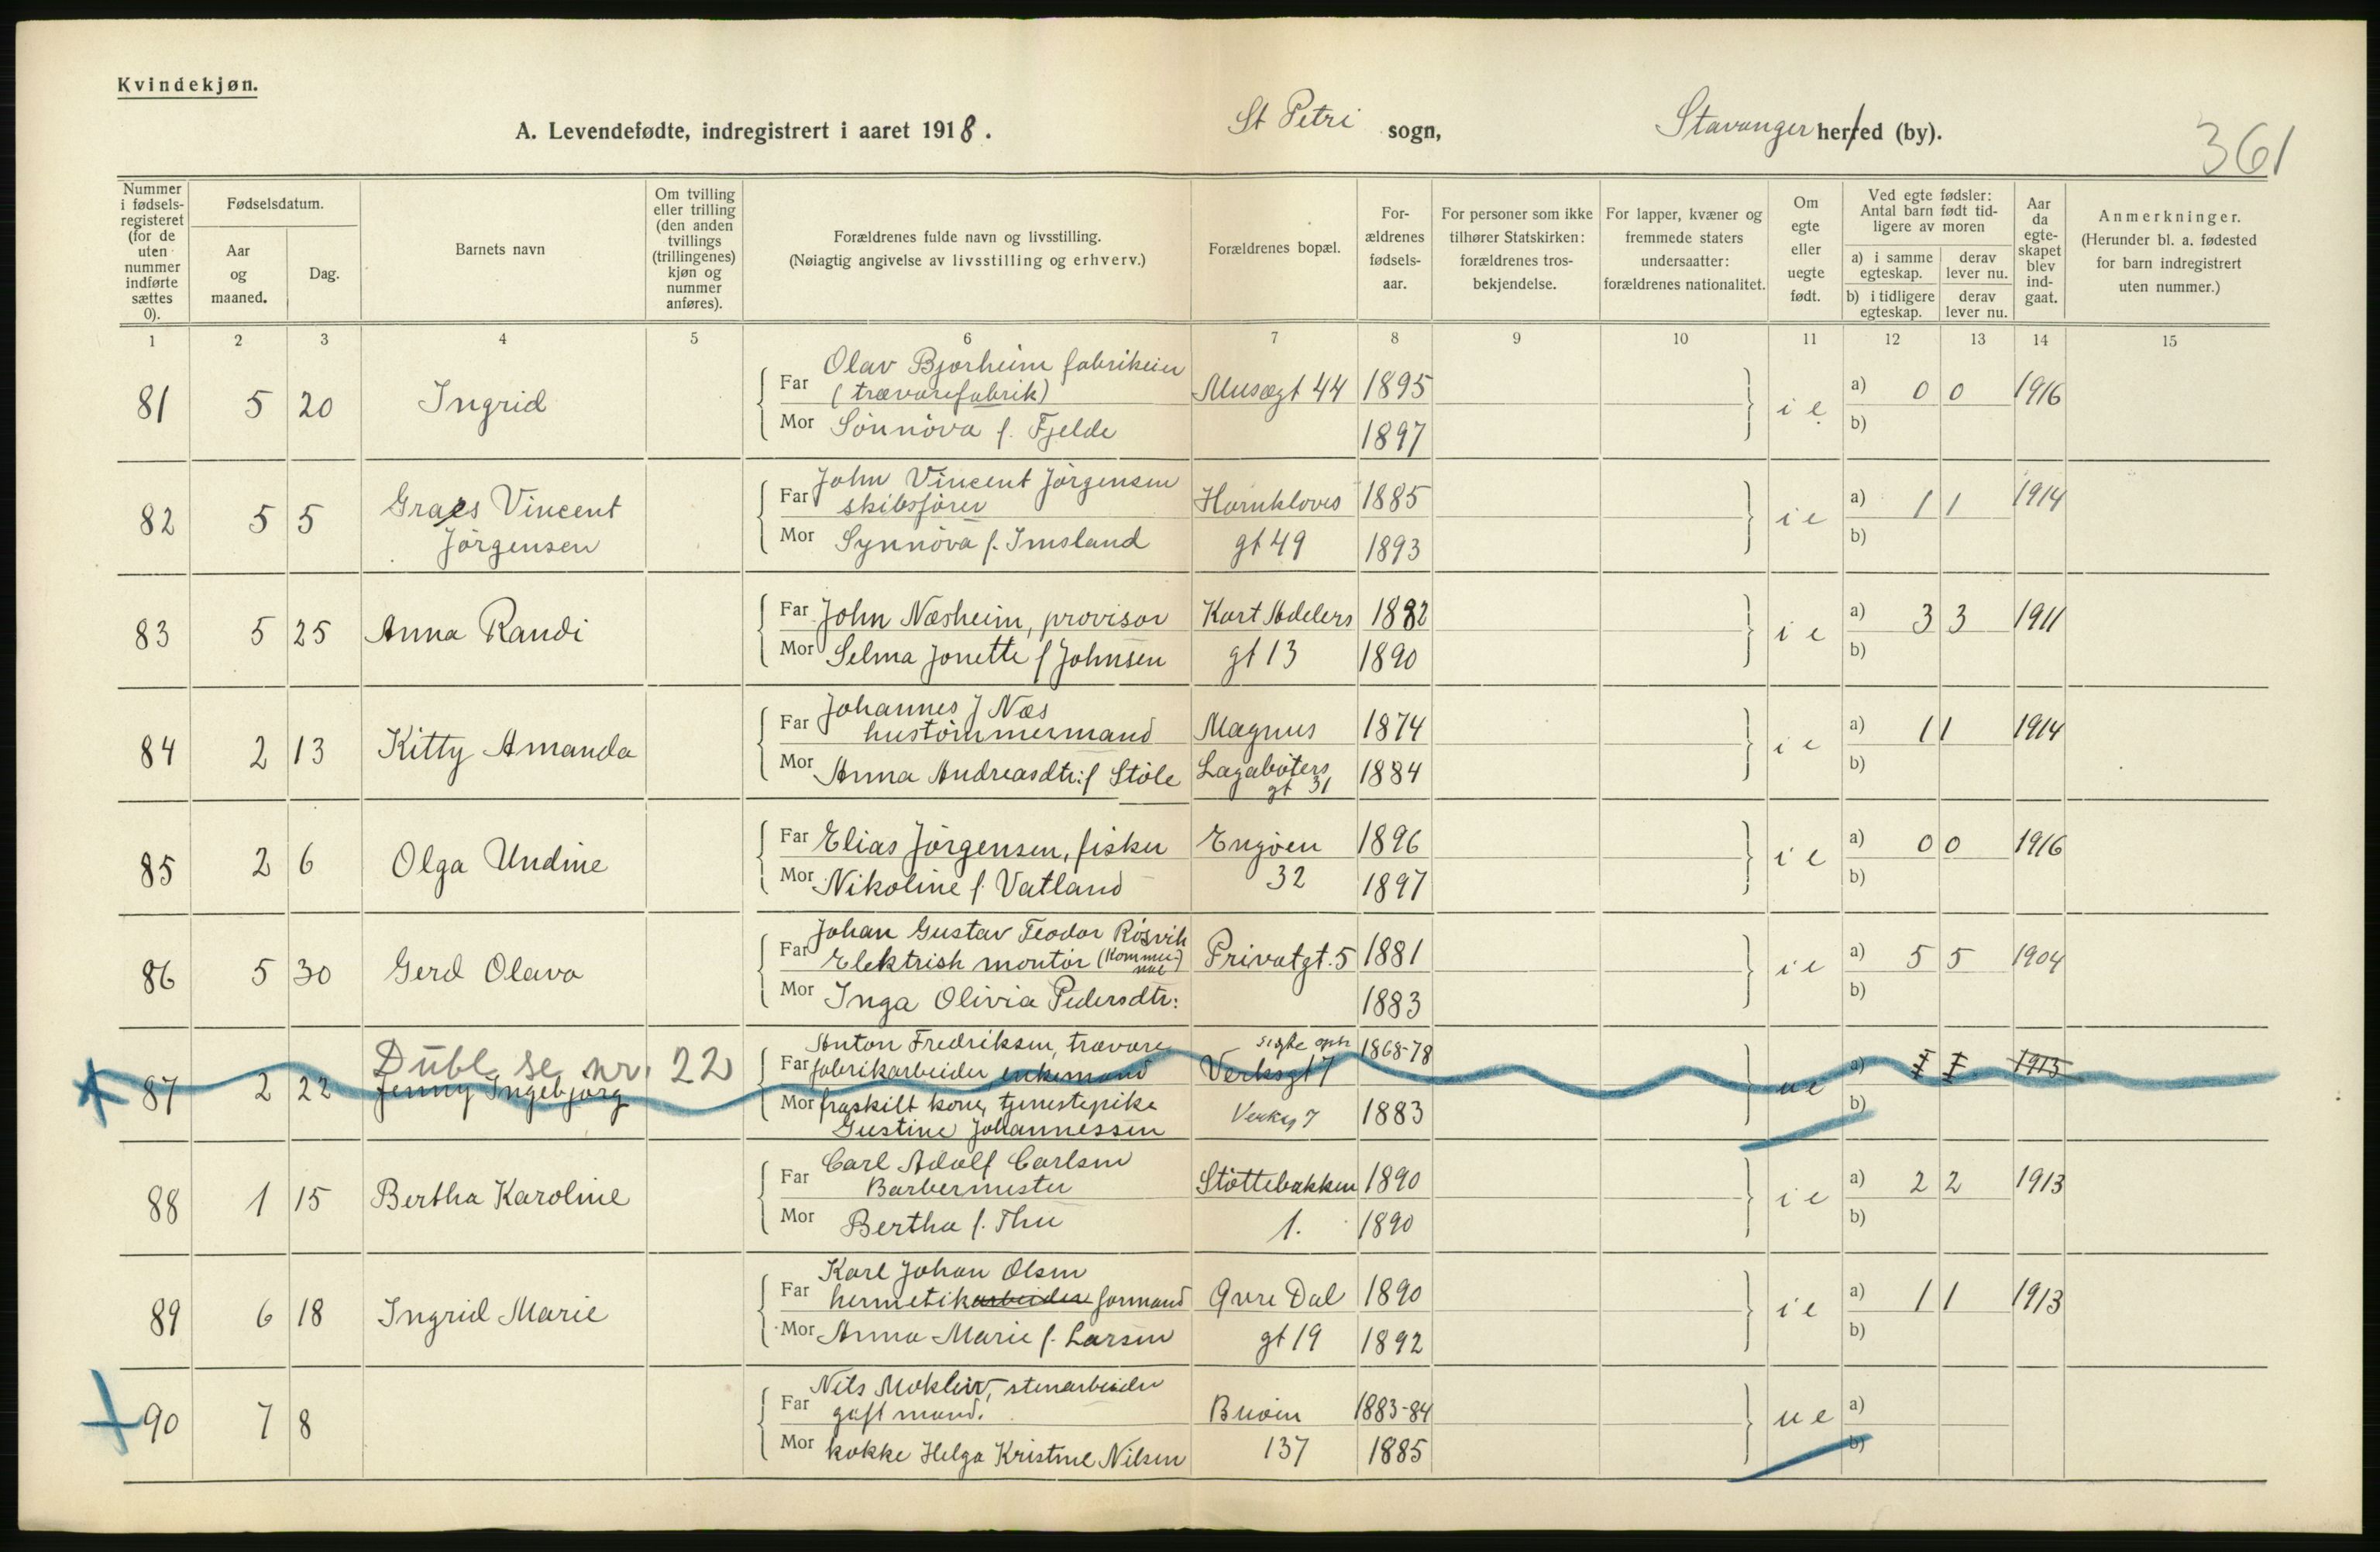 Kvindekjøn.
A. Levendefødte, indregistrert i aaret 1918. St Petri sogn, Stavanger herred (by).
361
Nummer i fødsels-registeret (for de uten nummer indførte sættes 0).
Fødselsdatum.
Aar og maaned.
Dag.
Barnets navn
Om tvilling eller trilling (den anden tvillings (trillingenes) kjøn og nummer anføres).
Forældrenes fulde navn og livsstilling.
(Nøiagtig angivelse av livsstilling og erhverv.)
Forældrenes bopæl.
For-ældrenes fødsels-aar.
For personer som ikke tilhører Statskirken: forældrenes tros-bekjendelse.
For lapper, kvæner og fremmede staters undersaatter: forældrenes nationalitet.
Om egte eller uegte født.
Ved egte fødsler: Antal barn født tid-ligere av moren
a) i samme egteskap.
derav lever nu.
b) i tidligere egteskap.
derav lever nu.
Aar da egte-skapet blev ind-gaat.
Anmerkninger.
(Herunder bl. a. fødested for barn indregistrert uten nummer.)
1 2 3 4 5 6 7 8 9 10 11 12 13 14 15
81 5 20 Ingrid
Far Olav Bjorheim fabrikeier
(trævarefabrik) Musægt 44 1895 i e a) 0 0 1916
Mor Sønnøva f. Fjelde 1897 b)
82 5 5 Graes Vincent
Jørgensen
Far John Vincent Jørgensen
skibsfører Hornkloves 1885 i e a) 1 1 1914
Mor Synnøva f. Imsland gt 49 1893 b)
83 5 25 Anna Randi
Far John Næsheim, provisor Kort Adelers 1882 i e a) 3 3 1911
Mor Selma Jonette f Johnsen gt 13 1890 b)
84 2 13 Kitty Amanda
Far Johannes J Næs
hustømmermand Magnus 1874 i e a) 1 1 1914
Mor Anna Andreasdtr: f Støle Lagabøters gt 31 1884 b)
85 2 6 Olga Undine
Far Elias Jørgensen, fisker Engøen 1896 i e a) 0 0 1916
Mor Nikoline f. Vatland 32 1897 b)
86 5 30 Gerd Olava
Far Johan Gustav Teodor Røsvik
Elektrisk montør (Kommunal) Privatgt. 5 1881 i e a) 5 5 1904
Mor Inga Olivia Pedersdtr: 1883 b)
Dubl. se nr. 22
87 2 22 Jenny Ingebjørg
Far Anton Fredriksen, trævare
fabrikarbeider enkemand Verksgt 7 1868-78 ue a) 1 1 1913
Mor fraskilt kone, tjenestepike
Gustine Johannessen Verksg 7 1883 b)
88 1 15 Bertha Karoline
Far Carl Adolf Carlsen
Barbermester Støttebakken 1890 i e a) 2 2 1913
Mor Bertha f. Thu 1. 1890 b)
89 6 18 Ingrid Marie
Far Karl Johan Olsen
hermetikarbeider formand Øvre Dal 1890 i e a) 1 1 1913
Mor Anna Marie f. Larsen gt 19 1892 b)
90 7 8
Far Nils Moklev, stenarbeider
gift mand. Buøen 1883-84 ue a)
Mor kokke Helga Kristine Nilsen 137 1885 b)